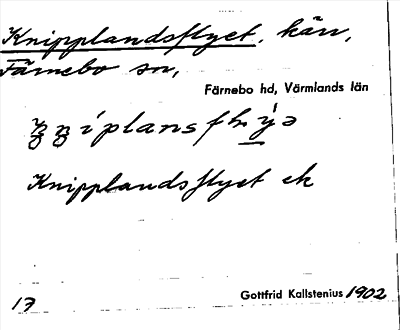 Knipplandsflyet, kärr,
Färnebo sn,
Färnebo hd, Värmlands län
Knipplandsflyet ek
Gottfrid Kallstenius 1902
17